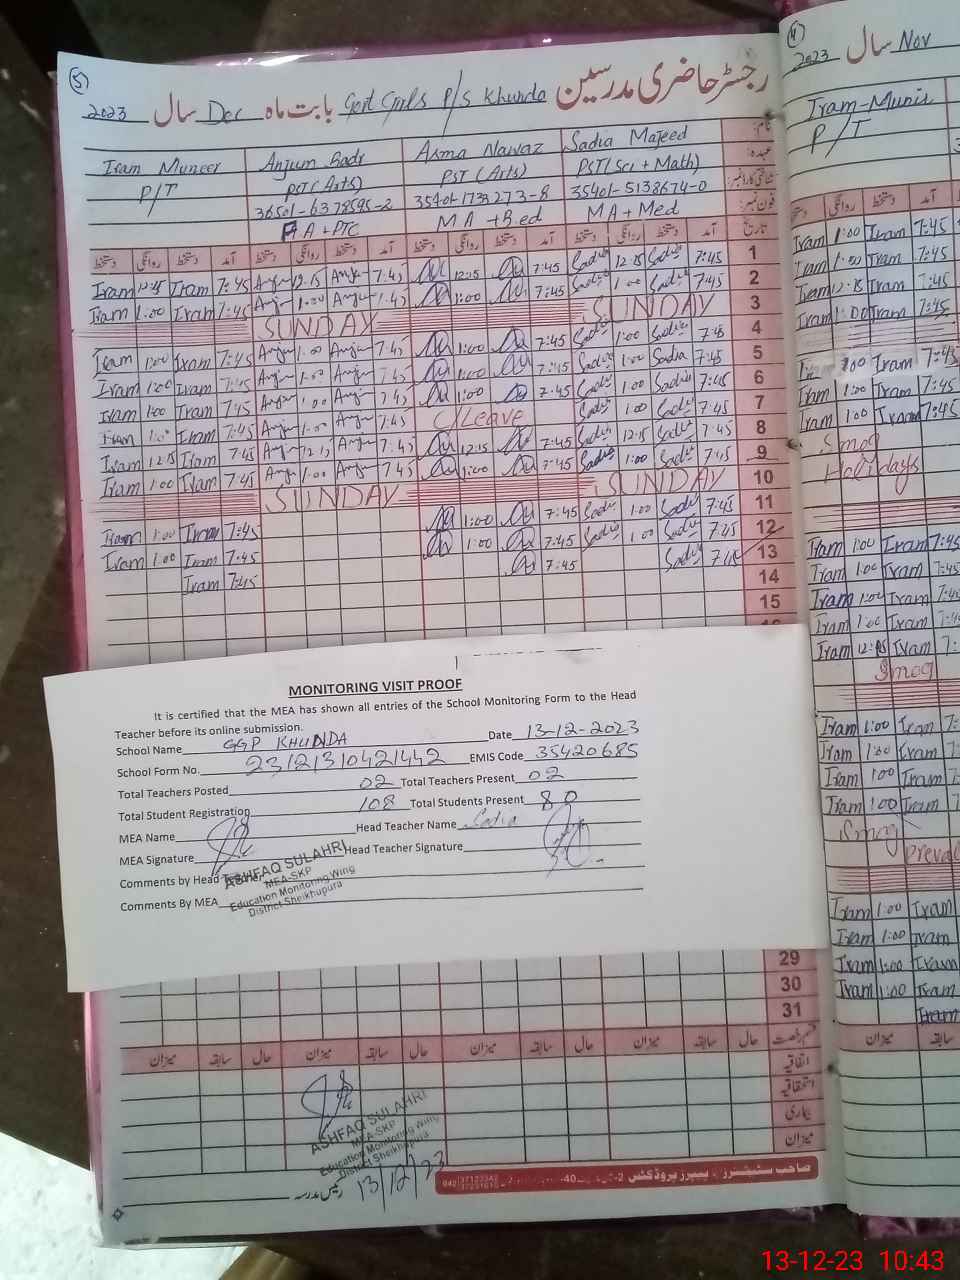 5
رجسٹر حاضری مدرسین
Govt Girls P/S Khunda بابت ماہ Dec سال 2023
Iram Muneer Anjum Badr Asma Nawaz Sadia Majeed نام:
P/T PST (Arts) PST (Arts) PST (Sci + Math) عہدہ:
36501-6378595-2 35401-1733273-8 35401-5138674-0 شناختی کارڈ نمبر:
A + PTC MA + B.ed MA + Med فون نمبر:
دستخط روانگی دستخط آمد دستخط روانگی دستخط آمد دستخط روانگی دستخط آمد دستخط روانگی دستخط آمد تاریخ
Iram 12:45 Iram 7:45 Anjum 12:15 Anjum 7:45 12:15 7:45 Sadia 12:15 Sadia 7:45 1
Iram 1:00 Iram 7:45 Anjum 1:00 Anjum 7:45 1:00 7:45 Sadia 1:00 Sadia 7:45 2
SUNDAY SUNDAY 3
Iram 1:00 Iram 7:45 Anjum 1:00 Anjum 7:45 1:00 7:45 Sadia 1:00 Sadia 7:45 4
Iram 1:00 Iram 7:45 Anjum 1:00 Anjum 7:45 1:00 7:45 Sadia 1:00 Sadia 7:45 5
Iram 1:00 Iram 7:45 Anjum 1:00 Anjum 7:45 1:00 7:45 Sadia 1:00 Sadia 7:45 6
Iram 1:00 Iram 7:45 Anjum 1:00 Anjum 7:45 C/Leave Sadia 1:00 Sadia 7:45 7
Iram 12:15 Iram 7:45 Anjum 12:15 Anjum 7:45 12:15 7:45 Sadia 12:15 Sadia 7:45 8
Iram 1:00 Iram 7:45 Anjum 1:00 Anjum 7:45 1:00 7:45 Sadia 1:00 Sadia 7:45 9
SUNDAY SUNDAY 10
Iram 1:00 Iram 7:45 1:00 7:45 Sadia 1:00 Sadia 7:45 11
Iram 1:00 Iram 7:45 1:00 7:45 Sadia 1:00 Sadia 7:45 12
Iram 7:45 7:45 Sadia 7:45 13
14
15
MONITORING VISIT PROOF
It is certified that the MEA has shown all entries of the School Monitoring Form to the Head
Teacher before its online submission.
School Name GGP KHUNDA Date 13-12-2023
School Form No. 23121310421442 EMIS Code 35420685
Total Teachers Posted 02 Total Teachers Present 02
Total Student Registration 108 Total Students Present 80
MEA Name Head Teacher Name Sadia
MEA Signature Head Teacher Signature
Comments by Head Teacher
Comments By MEA
ASHFAQ SULAHRI
MEA-SKP
Education Monitoring Wing
District Sheikhupura
29
30
31
میزان سابقہ حال میزان سابقہ حال میزان سابقہ حال میزان سابقہ حال قسم رخصت
اتفاقیہ
استحقاقیہ
بیماری
میزان
ASHFAQ SULAHRI
MEA-SKP
Education Monitoring Wing
District Sheikhupura
رئیس مدرسہ 13/12/23
4
2023 سال Nov
Iram-Munir
P/T
دستخط روانگی دستخط آمد
Iram 1:00 Iram 7:45
Iram 1:00 Iram 7:45
Iram 12:15 Iram 7:45
Iram 1:00 Iram 7:45
1:00 Iram 7:45
Iram 1:00 Iram 7:45
Iram 1:00 Iram 7:45
Smog
Holidays
Iram 1:00 Iram 7:45
Iram 1:00 Iram 7:45
Iram 1:00 Iram
Iram 1:00 Iram
Iram 12:15 Iram
Smog
Iram 1:00 Iram
Iram 1:00 Iram
Iram 1:00 Iram
Iram 1:00 Iram
Smog
Iram 1:00 Iram
Iram 1:00 Iram
Iram 1:00 Iram
Iram 1:00 Iram
Iram
میزان سابقہ
13-12-23 10:43